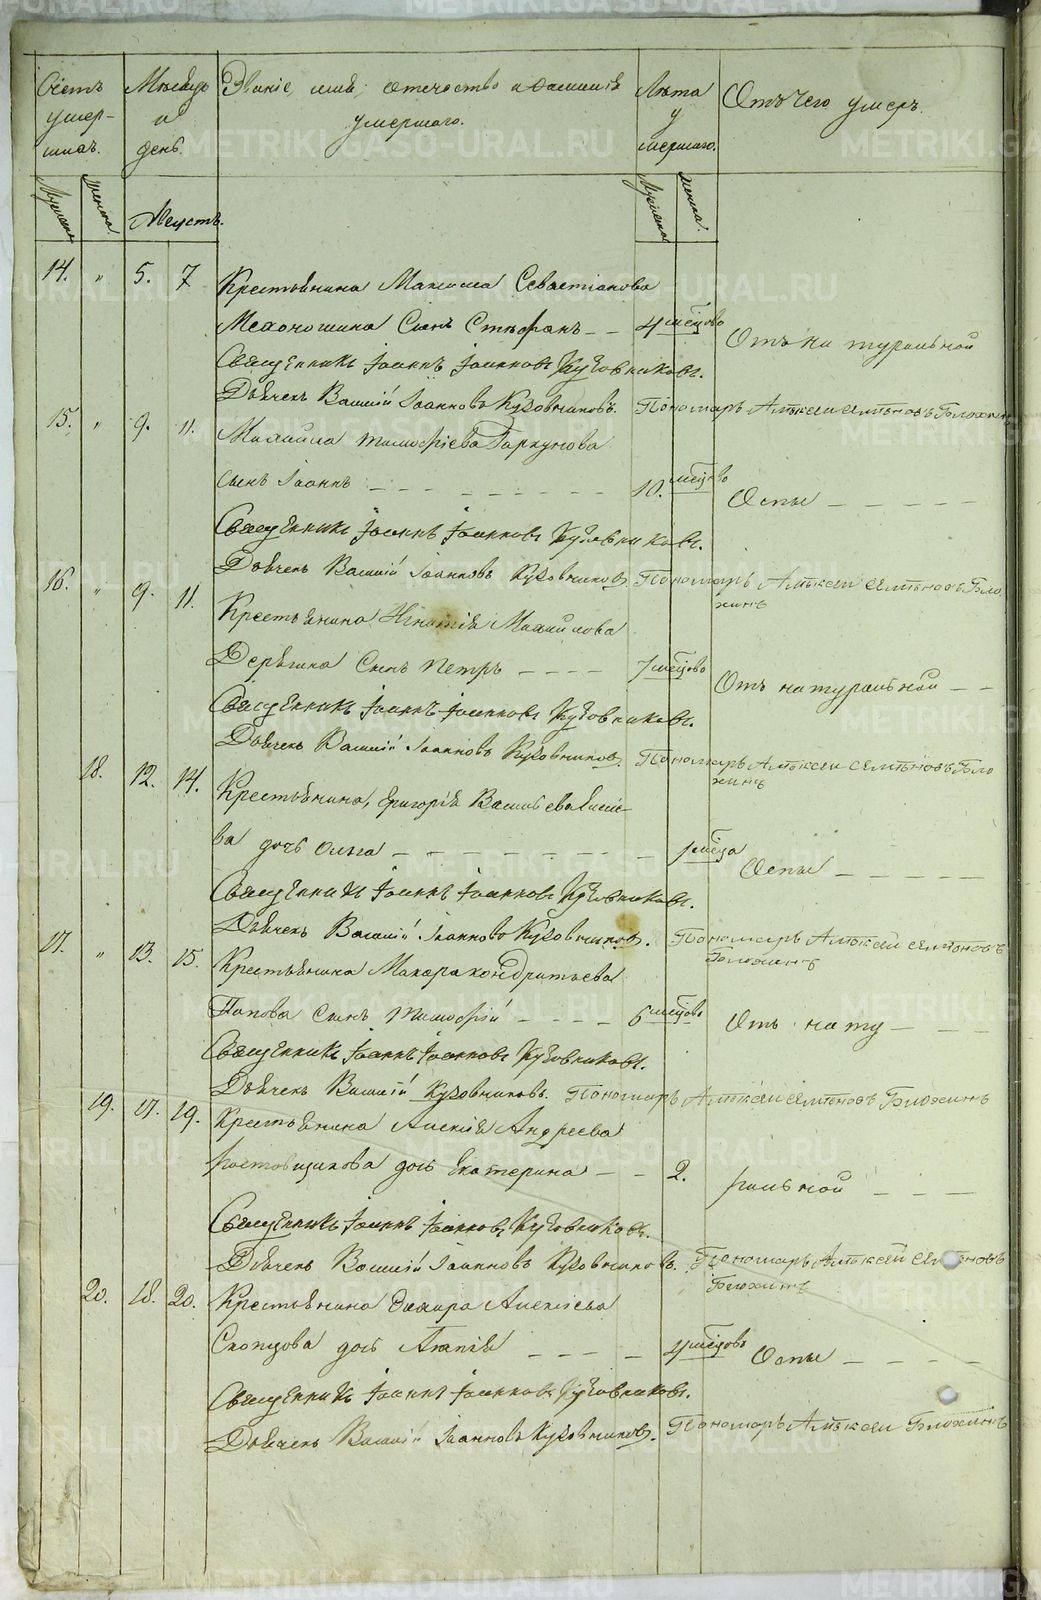 Счетъ умер- шихъ.
Мѣсяцъ и день.
Званіе, имя, отечество и фамилія умершаго.
Лѣта умершаго.
Отъ чего умеръ.
Мужеска женска.
Августъ.
Мужеска женска.
14. „ 5. 7 Крестьянина Максима Севастіанова
Механошина Сынъ Стефанъ – – 4 мѣсяцовъ Отъ натуральной
Священникъ Іоаннъ Іоанновъ Кузовниковъ.
Дьячекъ Василій Іоанновъ Кузовниковъ. Пономарь Алѣксѣй Семѣновъ Блохинъ
15. „ 9. 11. Михайла Тимофіева Горкунова
сынъ Іоаннъ – – – – – – – – 10. мѣсяцовъ Оспы – – – –
Священникъ Іоаннъ Іоанновъ Кузовниковъ.
Дьячекъ Василій Іоанновъ Кузовниковъ. Пономарь Алѣксѣй Семѣновъ Бло
хинъ
16. „ 9. 11. Крестьянина Игнатія Михайлова
Дерягина Сынъ Петръ – – – – 7 мѣсяцовъ Отъ натуральной – –
Священникъ Іоаннъ Іоанновъ Кузовниковъ.
Дьячекъ Василій Іоанновъ Кузовниковъ. Пономарь Алѣксѣй Семѣновъ Бло
хинъ
18. 12. 14. Крестьянина, Григорія Васильева Елисѣ
ва дочь Ольга – – – – – – – – 1 мѣсяца Оспы – – – –
Священникъ Іоаннъ Іоанновъ Кузовниковъ.
Дьячекъ Василій Іоанновъ Кузовниковъ. Пономарь Алѣксѣй Семѣновъ
Блохинъ
17. „ 13. 15. Крестьянина Макара Кондратьева
Попова Сынъ Тимофій – – – – 6 мѣсяцовъ Отъ нату – – –
Священникъ Іоаннъ Іоанновъ Кузовниковъ.
Дьячекъ Василій Кузовниковъ. Пономарь Алѣксѣй Семѣновъ Блохинъ
19. 17. 19. Крестьянина Алексія Андреева
Ростовщикова дочь Екатерина – – 2. ральной – – –
Священникъ Іоаннъ Іоанновъ Кузовниковъ.
Дьячекъ Василій Іоанновъ Кузовниковъ. Пономарь Алѣксѣй Семѣновъ
Блохинъ
20. 18. 20. Крестьянина Захара Алексіева
Скопцова дочь Агапія – – – – 4 мѣсяцовъ Оспы – – – –
Священникъ Іоаннъ Іоанновъ Кузовниковъ.
Дьячекъ Василій Іоанновъ Кузовниковъ. Пономарь Алѣксѣй Блохинъ
METRIKI.GASO-URAL.RU